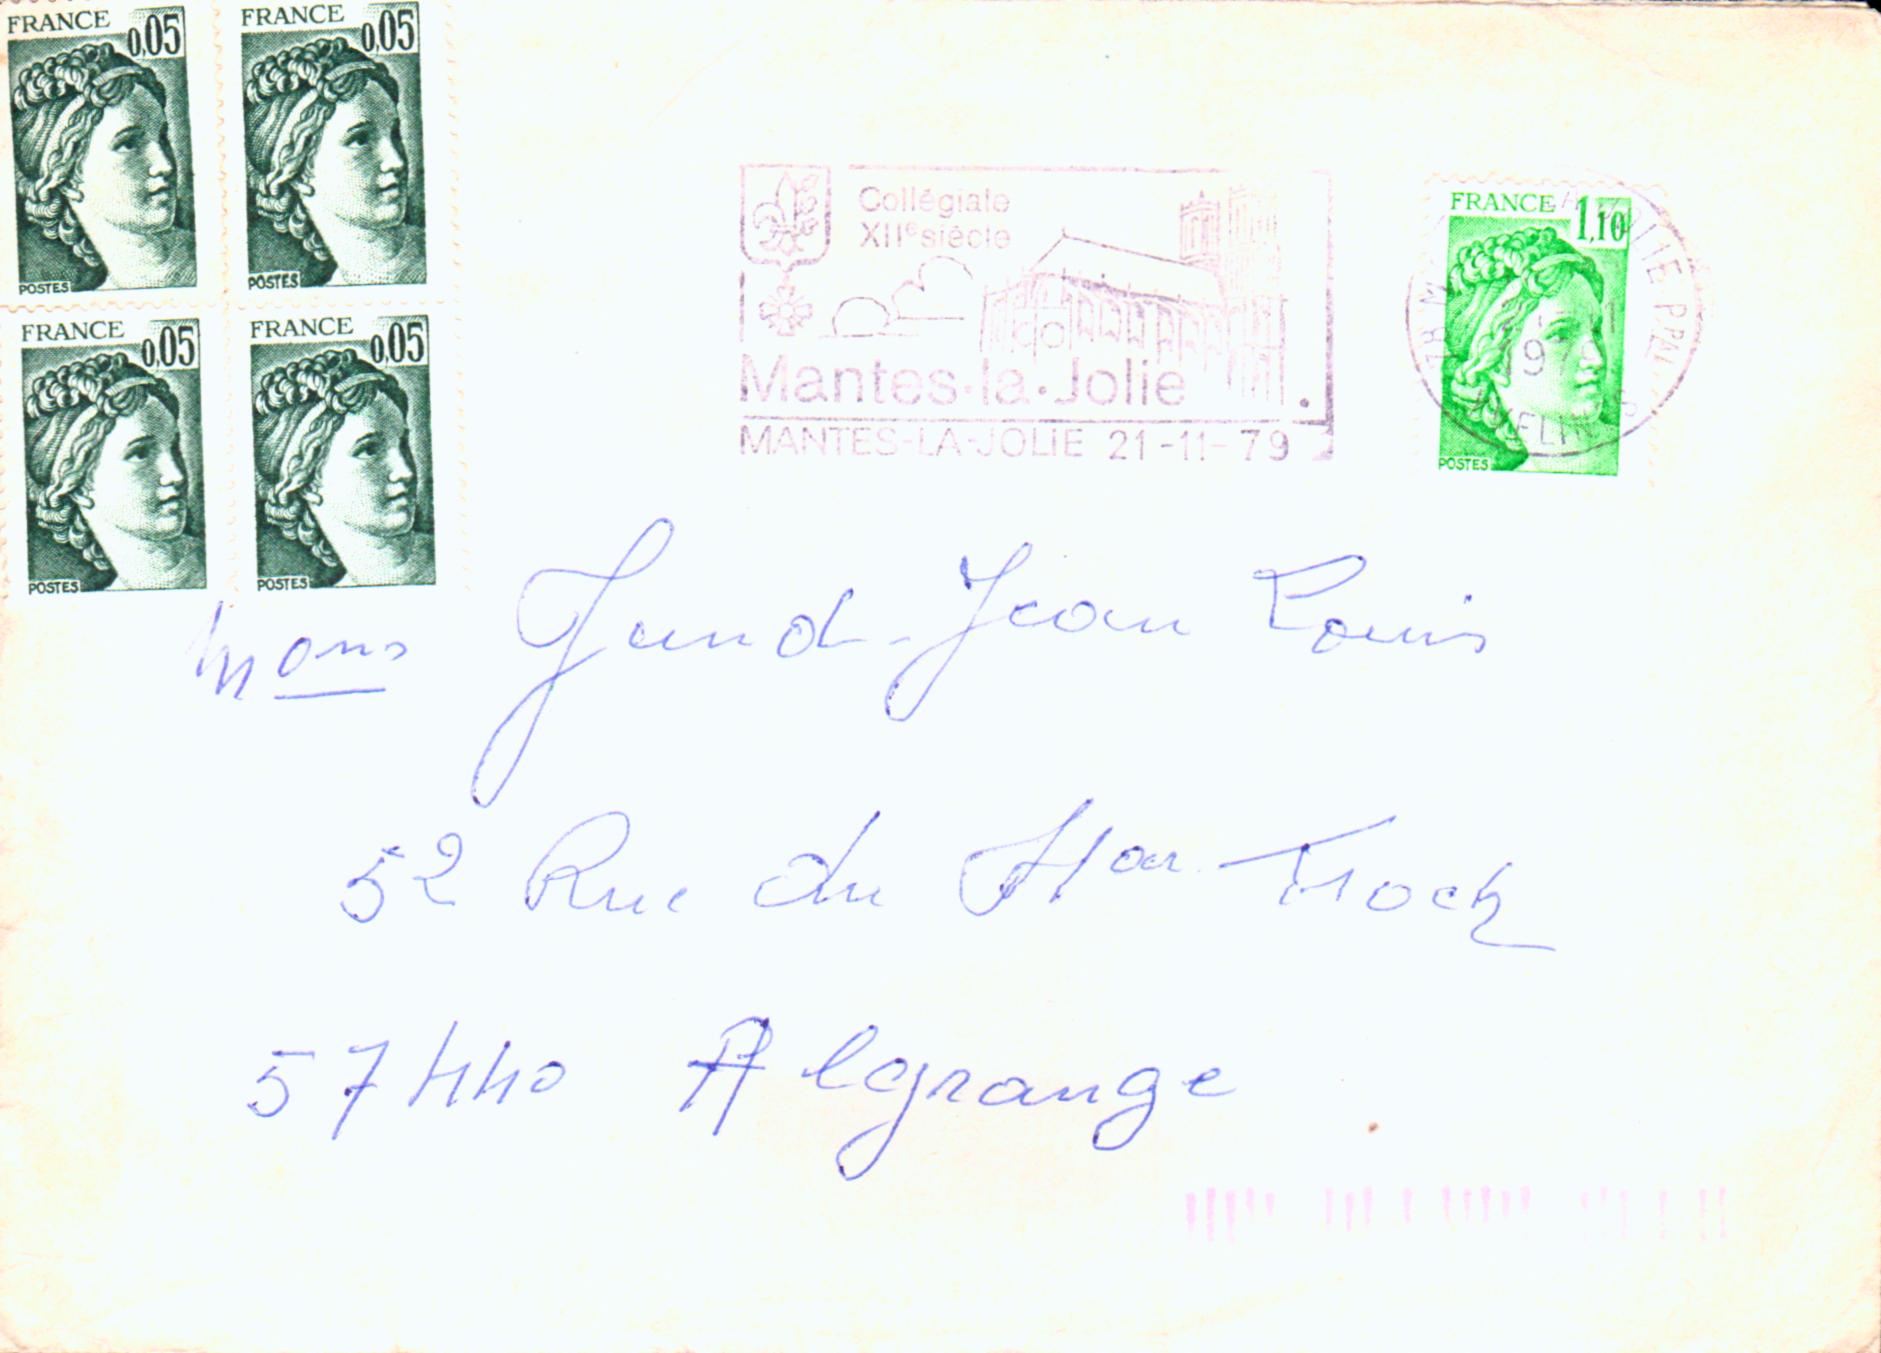 FRANCE 0,05
POSTES
FRANCE 0,05
POSTES
FRANCE 0,05
POSTES
FRANCE 0,05
POSTES
Collégiale
XIIe siècle
Mantes-la-Jolie
MANTES-LA-JOLIE 21-11-79
FRANCE 1,10
POSTES
Mons Jund-Jean Louis
52 Rue du
57440 Algrange